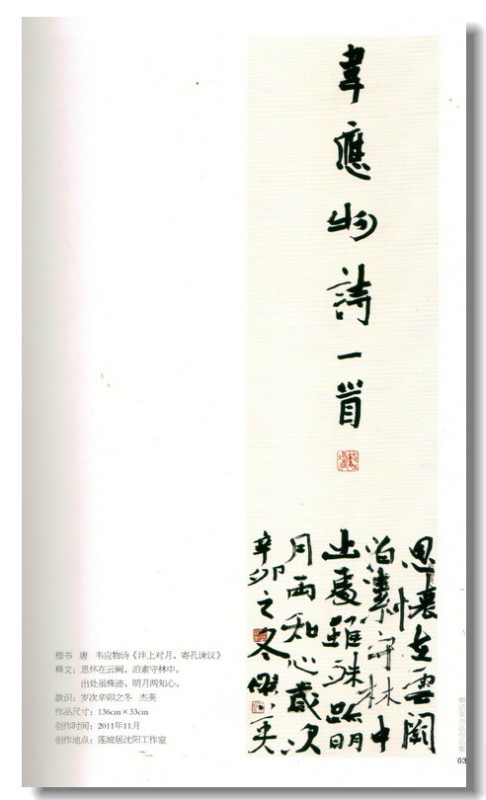 韋應物詩一首
思懷在雲闕
泊素守林中
出處雖殊跡明
月兩知心歲次
辛卯之冬傑英
楷书 唐 韦应物诗《沣上对月，寄孔谏议》
释文：思怀在云阙，泊素守林中。
出处虽殊迹，明月两知心。
款识：岁次辛卯之冬 杰英
作品尺寸：136cm×33cm
创作时间：2011年11月
创作地点：莲坡居沈阳工作室
03